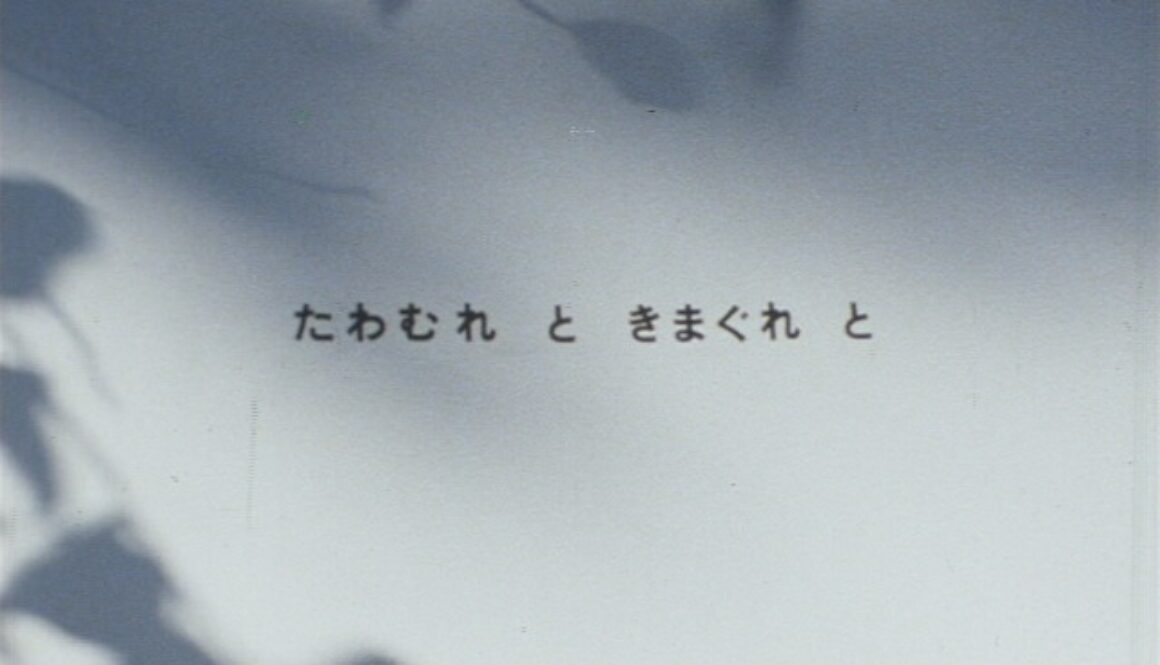 たわむれ と きまぐれ と